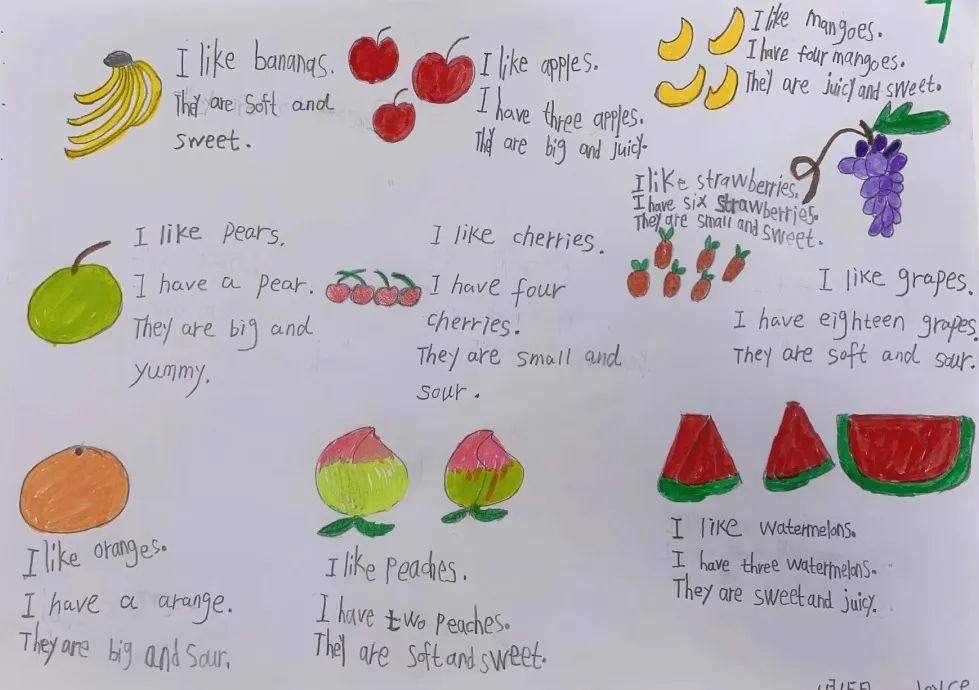 7
I like bananas.
They are soft and
sweet.
I like apples.
I have three apples.
They are big and juicy.
I like mangoes.
I have four mangoes.
They are juicy and sweet.
I like strawberries.
I have six strawberries.
They are small and sweet.
I like Pears.
I have a pear.
They are big and
yummy.
I like cherries.
I have four
cherries.
They are small and
sour.
I like grapes.
I have eighteen grapes.
They are soft and sour.
I like oranges.
I have a arange.
They are big and sour.
I like Peaches.
I have two peaches.
They are soft and sweet.
I like watermelons.
I have three watermelons.
They are sweet and juicy.